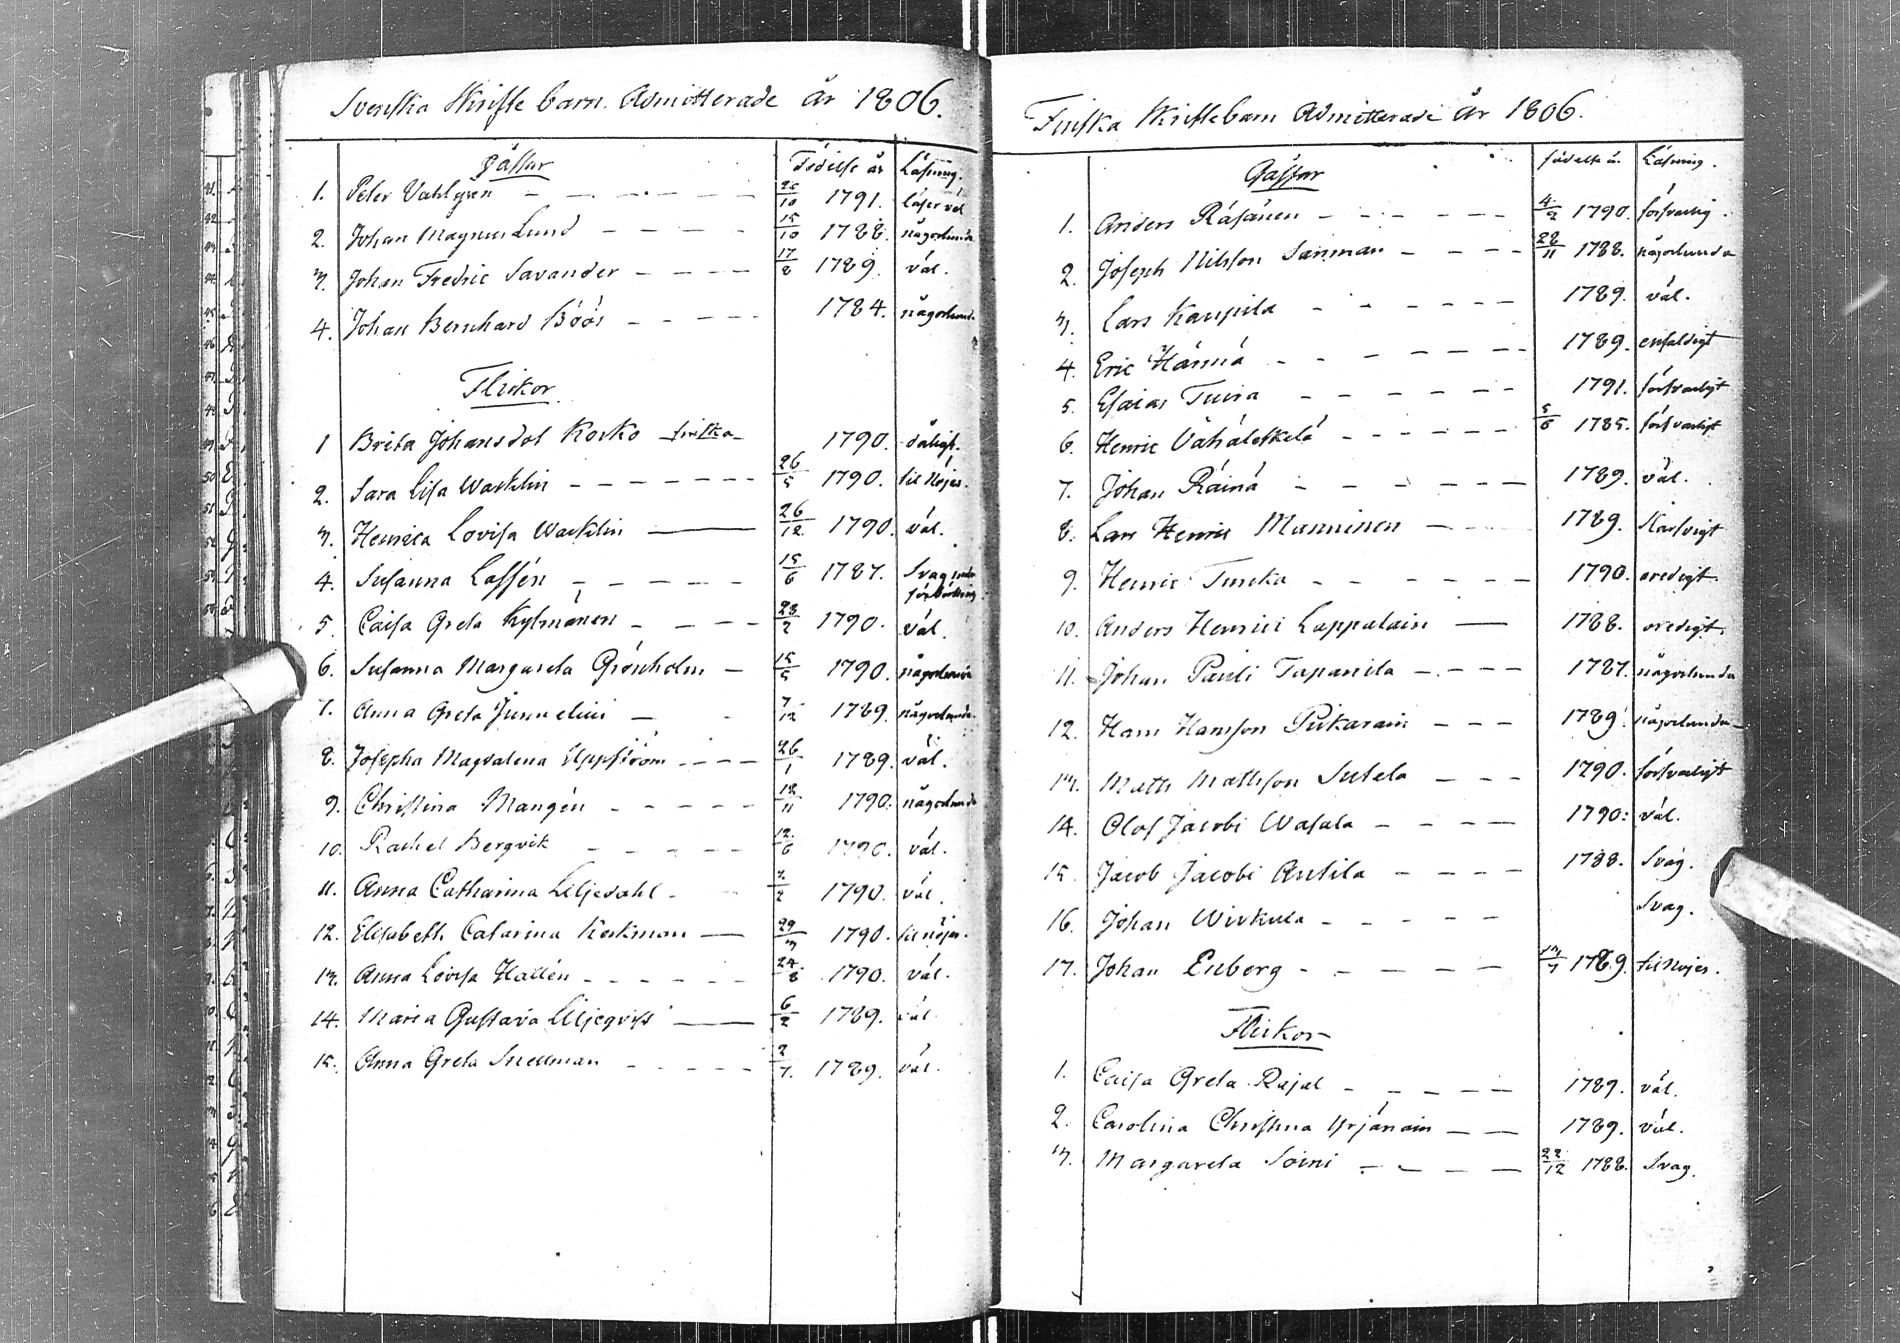 Svenska Skriftebarn Admitterade år 1806.
Gåssar Födelse år Läsning.
1. Peter Vahlgren 25/10 1791. läser väl
2. Johan Magnus Lund 15/10 1788. någorlunda
3. Johan Fredric Savander 17/8 1789. väl.
4. Johan Bernhard Böös 1784. någorlund.
Flickor
1 Brita Johansdot Korko finska 1790. dåligt.
2. Sara Lisa Wacklin 26/5 1790. til nöjes.
3. Henrica Lovisa Wacklin 26/12 1790. väl.
4. Susanna Lassén 15/6 1787. Svag
5. Caisa Greta Kylmänen 28/2 1790. väl.
6. Susanna Margareta Grönholm 15/5 1790. någorlunda
7. Anna Greta Junnelius 7/12 1789. någorlunda.
8. Josepha Magdalena Uppström 26/1 1789. väl.
9. Christina Mangén 18/11 1790. någorlunda
10. Rachel Bergvik 12/6 1790. väl.
11. Anna Catharina Liljedahl 2/2 1790. väl.
12. Elisabeth Catarina Keckman 29/3 1790. til nöjes.
13. Anna Lovisa Hallén 24/8 1790. väl.
14. Maria Gustava Liljeqvist 6/2 1789. väl
15. Anna Greta Snellman 2/7. 1789. väl.
Finska Skriftebarn Admitterade år 1806.
Gåssar födelse å. Läsning.
1. Anders Räsänen 4/2 1790. försvarlig.
2. Joseph Nilsson Sanman 28/11 1788. någorlunda
3. Lars Kaupila 1789. väl.
4. Eric Hännä 1789. enfaldigt
5. Esaias Tuira 1791. försvarligt
6. Henric Vähäleskelä 5/6 1785. försvarligt
7. Johan Räinä 1789. väl.
8. Lars Henric Manninen 1789.
9. Henric Turcka 1790. oredigt.
10. Anders Henrici Lappalain 1788. oredigt.
11. Johan Pauli Tapanila 1787. någorlunda
12. Hans Hansson Pukarain 1789. någorlunda
13. Matts Mattsson Sutela 1790. försvarligt
14. Olof Jacobi Wasala 1790: väl.
15. Jacob Jacobi Antila 1788. Svag.
16. Johan Wirkula Svag.
17. Johan Enberg 13/7 1789. til nöjes.
Flickor
1. Caisa Greta Rajal 1789. väl.
2. Carolina Christina Yrjänäin 1789. väl.
3. Margareta Soini 22/12 1788. Svag.